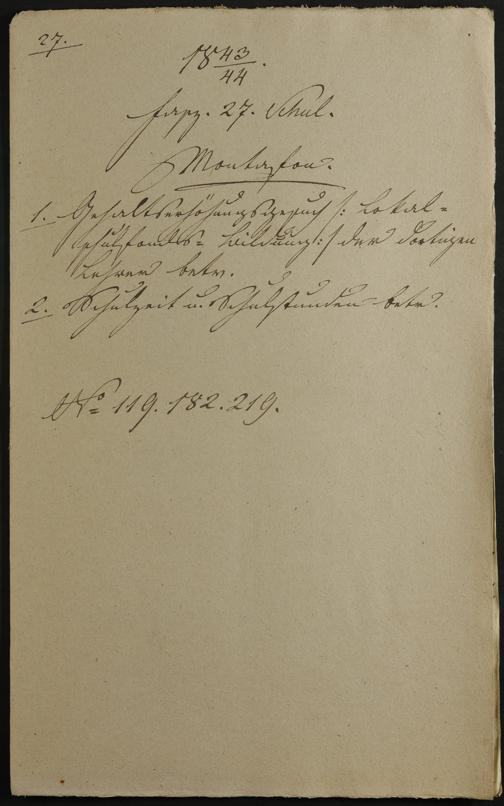 27.
18 43/44.
Fasz. 27. Schul.
Montafon.
1. Gehaltserhöhungsgesuch /: Lokal-
schulfonds- Bildung :/ der dortigen
Lehrer betr.
2. Schulzeit u. Schulstunden betr.
No 119. 182. 219.